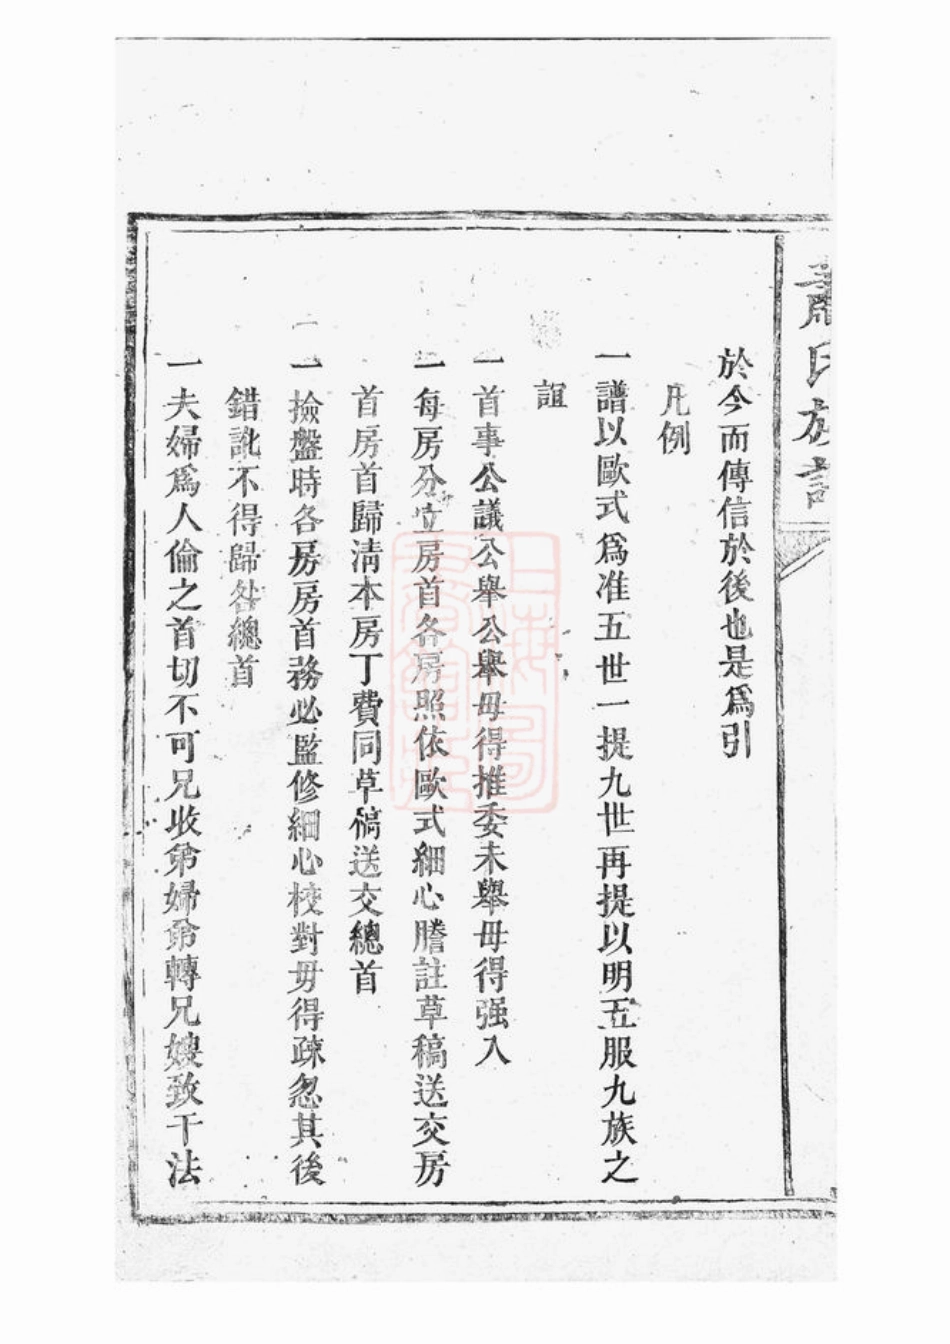 蕭氏族譜
於今而傳信於後也是爲引
凡例
一譜以歐式爲准五世一提九世再提以明五服九族之
誼
一首事公議公舉公舉毋得推委未舉毋得强入
一每房分立房首各房照依歐式細心謄註草稿送交房
首房首歸清本房丁費同草稿送交總首
一撿盤時各房房首務必監修細心校對毋得疎忽其後
錯訛不得歸咎總首
一夫婦爲人倫之首切不可兄收弟婦弟轉兄嫂致干法